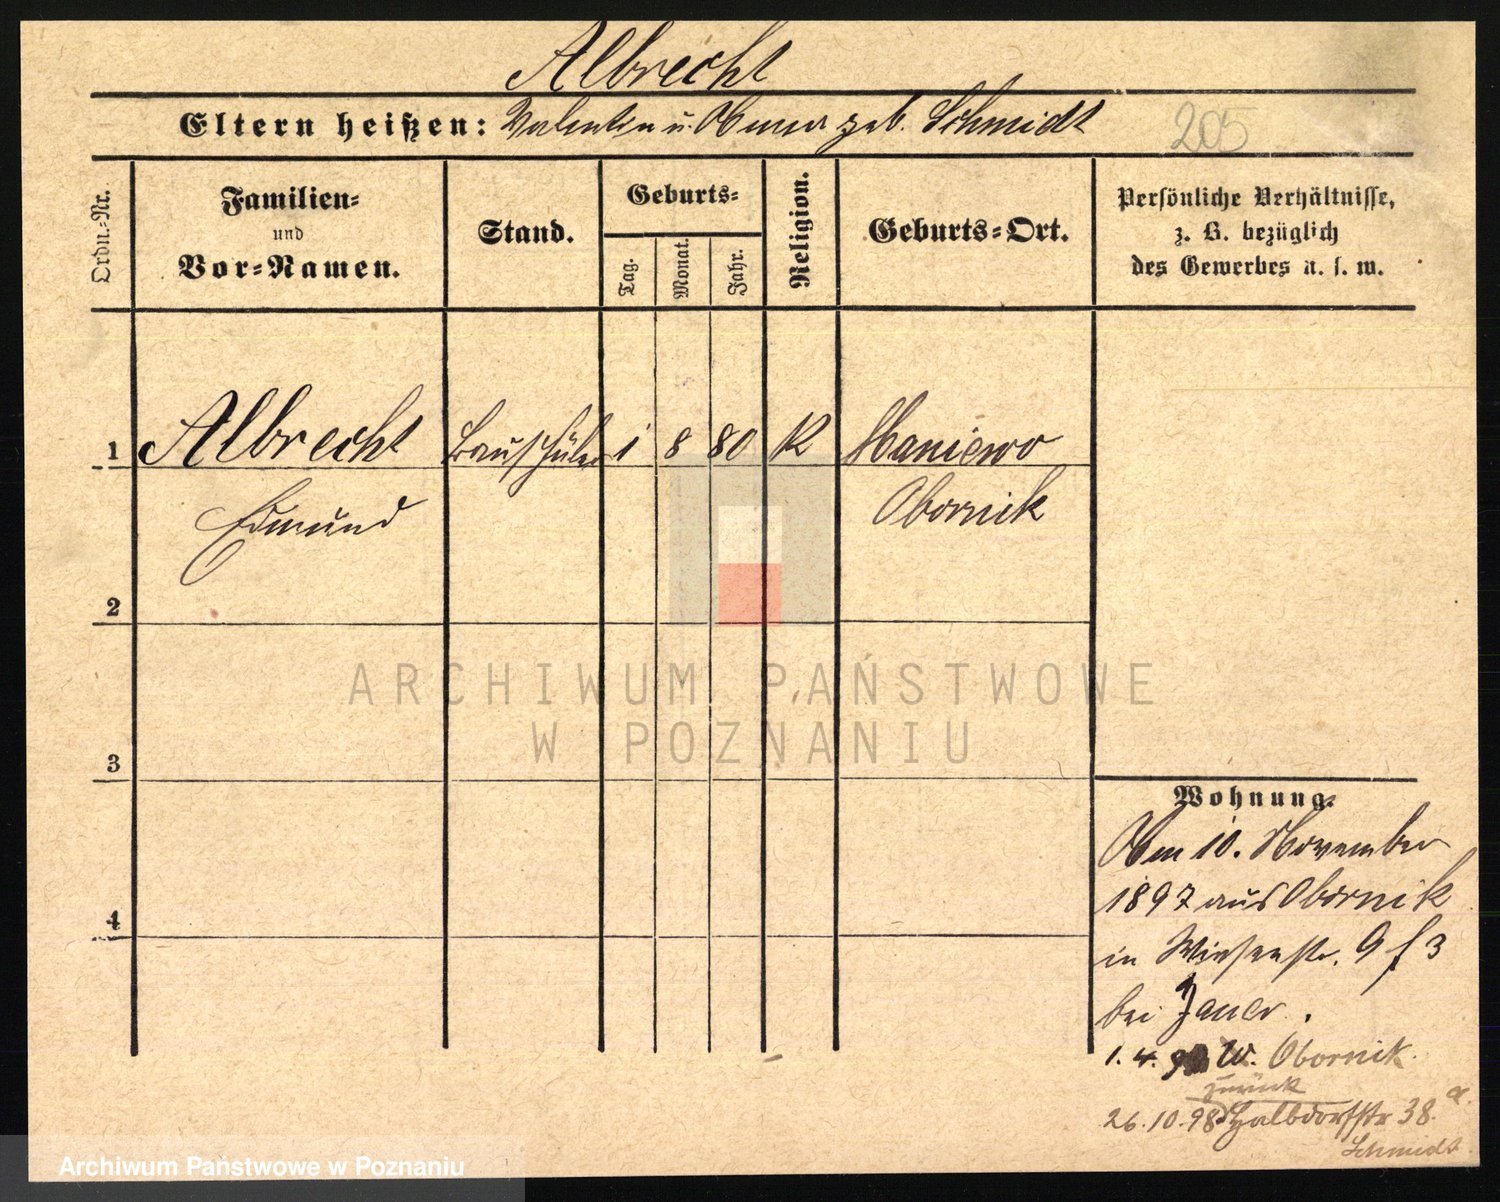 Albrecht
Eltern heißen: Valentin u. Anna geb. Schmidt
205
Ordn.-Nr.
Familien-
und
Vor-Namen.
Stand.
Geburts-
Tag.
Monat.
Jahr.
Religion.
Geburts-Ort.
Persönliche Verhältnisse,
z. B. bezüglich
des Gewerbes u. s. w.
1 Albrecht Bauschüler 1 8 80 K Maniewo
Edmund Obornik
2
3
4
ARCHIWUM PAŃSTWOWE
W POZNANIU
Wohnung.
Am 10. November
1897 aus Obornik
in Wiesenstr. 9
bei Jauer.
1. 4. W. Obornik
zurück
26.10.98 Halbdorfstr 38.
Schmidt
Archiwum Państwowe w Poznaniu